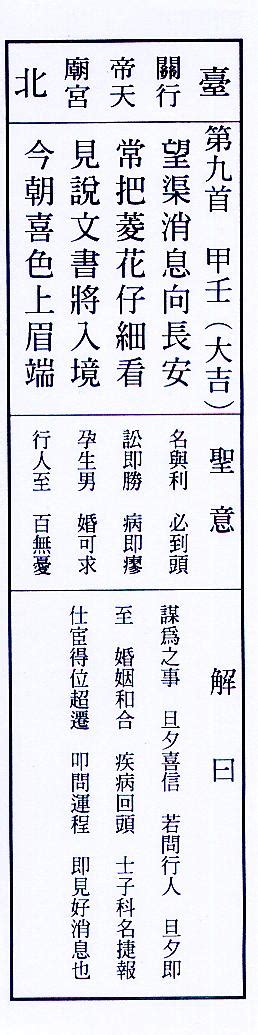 臺北
行天宮
關帝廟
第九首　甲壬（大吉）
望渠消息向長安
常把菱花仔細看
見說文書將入境
今朝喜色上眉端
聖意
名與利　必到頭
訟即勝　病即瘳
孕生男　婚可求
行人至　百無憂
解曰
謀為之事　旦夕喜信　若問行人　旦夕即
至　婚姻和合　疾病回頭　士子科名捷報
仕宦得位超遷　叩問運程　即見好消息也